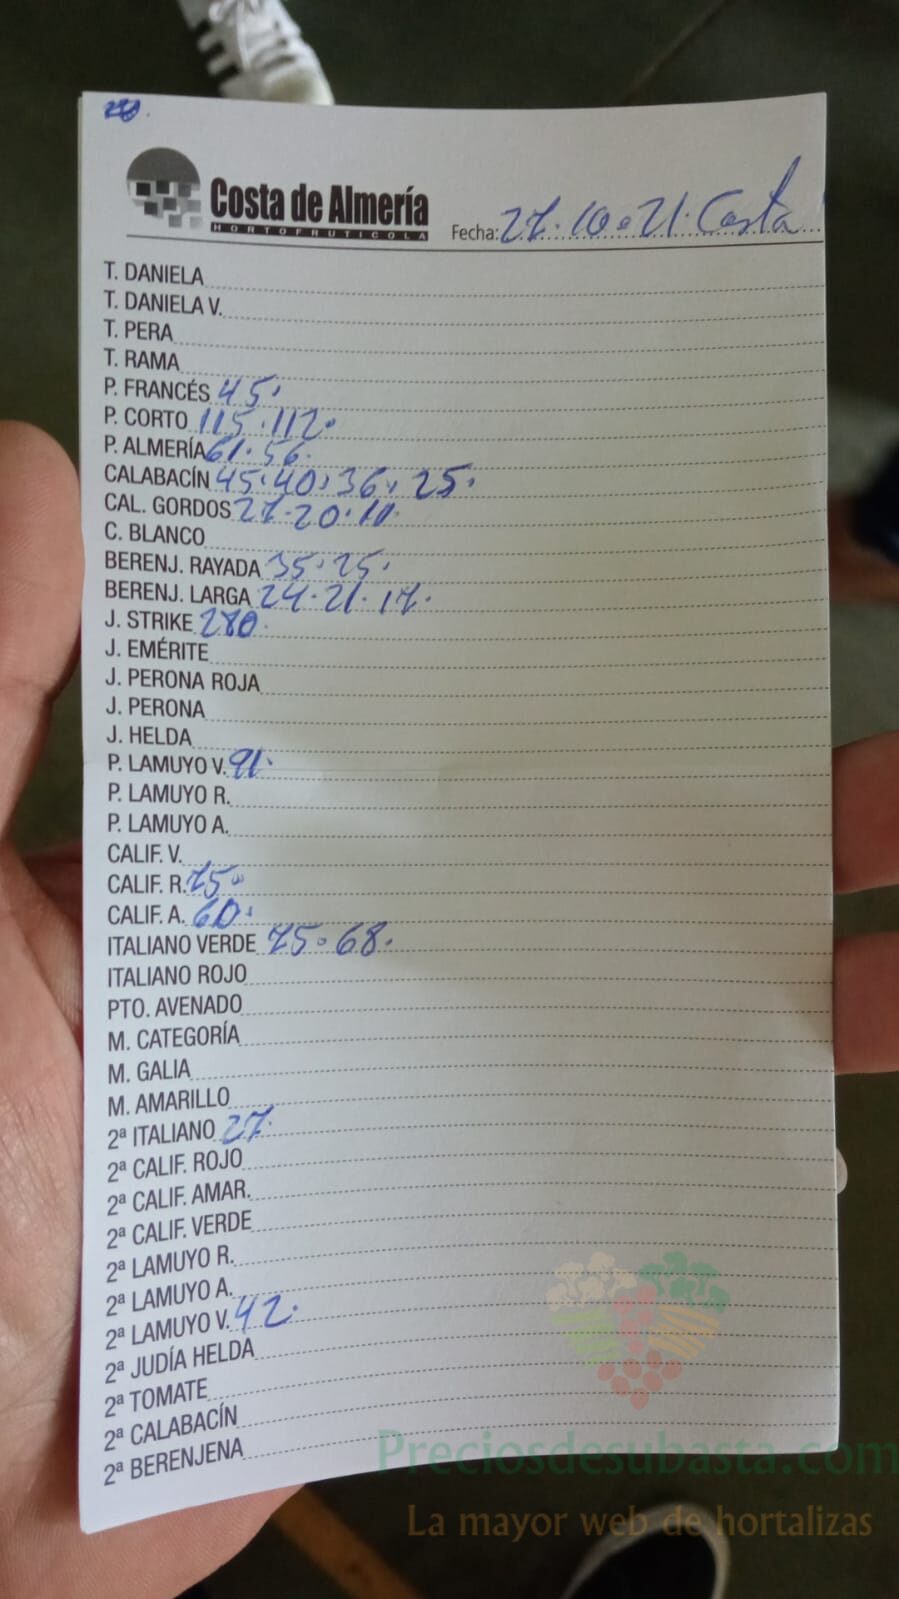 Costa de Almería
HORTOFRUTICOLA
Fecha: 27.10.21. Costa
T. DANIELA
T. DANIELA V.
T. PERA
T. RAMA
P. FRANCÉS 45.
P. CORTO 115.112.
P. ALMERÍA 61.56.
CALABACÍN 45.40.36.25.
CAL. GORDOS 27.20.10.
C. BLANCO
BERENJ. RAYADA 35.25.
BERENJ. LARGA 24.21.17.
J. STRIKE 280.
J. EMÉRITE
J. PERONA ROJA
J. PERONA
J. HELDA
P. LAMUYO V. 91.
P. LAMUYO R.
P. LAMUYO A.
CALIF. V.
CALIF. R. 75.
CALIF. A. 60.
ITALIANO VERDE 75.68.
ITALIANO ROJO
PTO. AVENADO
M. CATEGORÍA
M. GALIA
M. AMARILLO
2ª ITALIANO 27.
2ª CALIF. ROJO
2ª CALIF. AMAR.
2ª CALIF. VERDE
2ª LAMUYO R.
2ª LAMUYO A.
2ª LAMUYO V. 42.
2ª JUDÍA HELDA
2ª TOMATE
2ª CALABACÍN
2ª BERENJENA
Preciosdesubasta.com
La mayor web de hortalizas